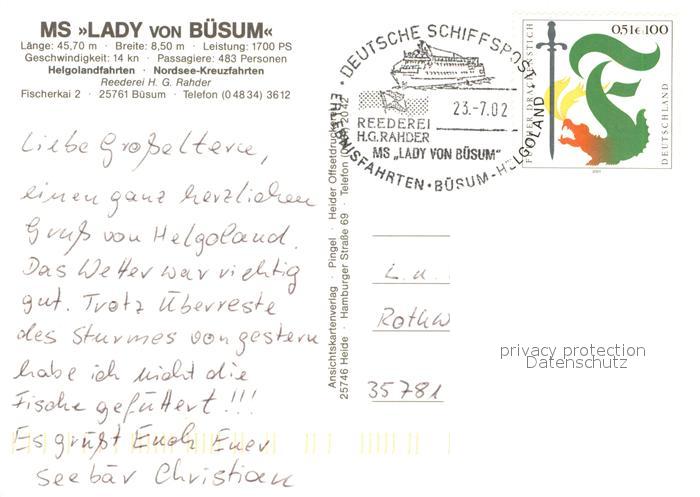 MS »LADY VON BÜSUM«
Länge: 45,70 m · Breite: 8,50 m · Leistung: 1700 PS
Geschwindigkeit: 14 kn · Passagiere: 483 Personen
Helgolandfahrten · Nordsee-Kreuzfahrten
Reederei H. G. Rahder
Fischerkai 2 · 25761 Büsum · Telefon (0 48 34) 3612
Liebe Großeltern,
einen ganz herzlichen
Gruß von Helgoland.
Das Wetter war richtig
gut. Trotz Überreste
des Sturmes von gestern
habe ich nicht die
Fische gefüttert!!!
Es grüßt Euch Euer
Seebär Christian
Ansichtskartenverlag · Pingel · Heider Offsetdruckerei
25746 Heide · Hamburger Straße 69 · Telefon
DEUTSCHE SCHIFFSPOST
REEDEREI
H.G. RAHDER
23.-7.02
MS „LADY VON BÜSUM“
ERLEBNISFAHRTEN · BÜSUM-HELGOLAND
0,51€ 100
DRACHENSTICH
DEUTSCHLAND
2001
L. u.
Rothw
35781
privacy protection
Datenschutz